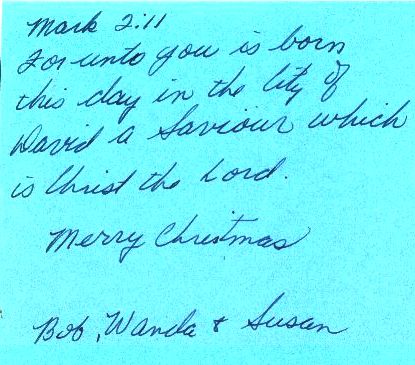 Mark 2:11
For unto you is born
this day in the City of
David a Saviour which
is Christ the Lord.
Merry Christmas
Bob, Wanda & Susan